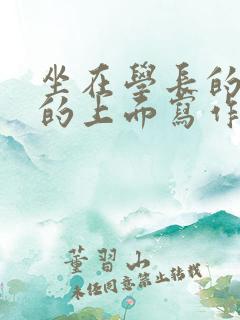 坐在學長的
的上而寫作
董習山
未任同意禁止轉載